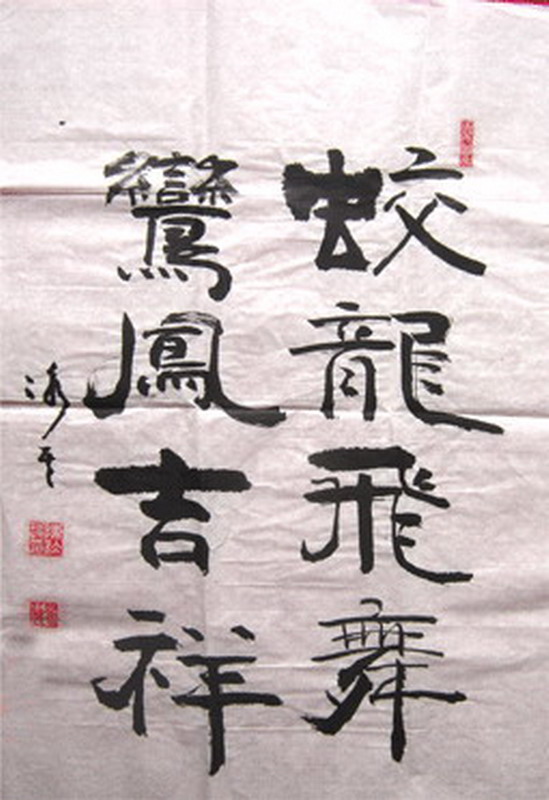 蛟龍飛舞
鸞鳳吉祥